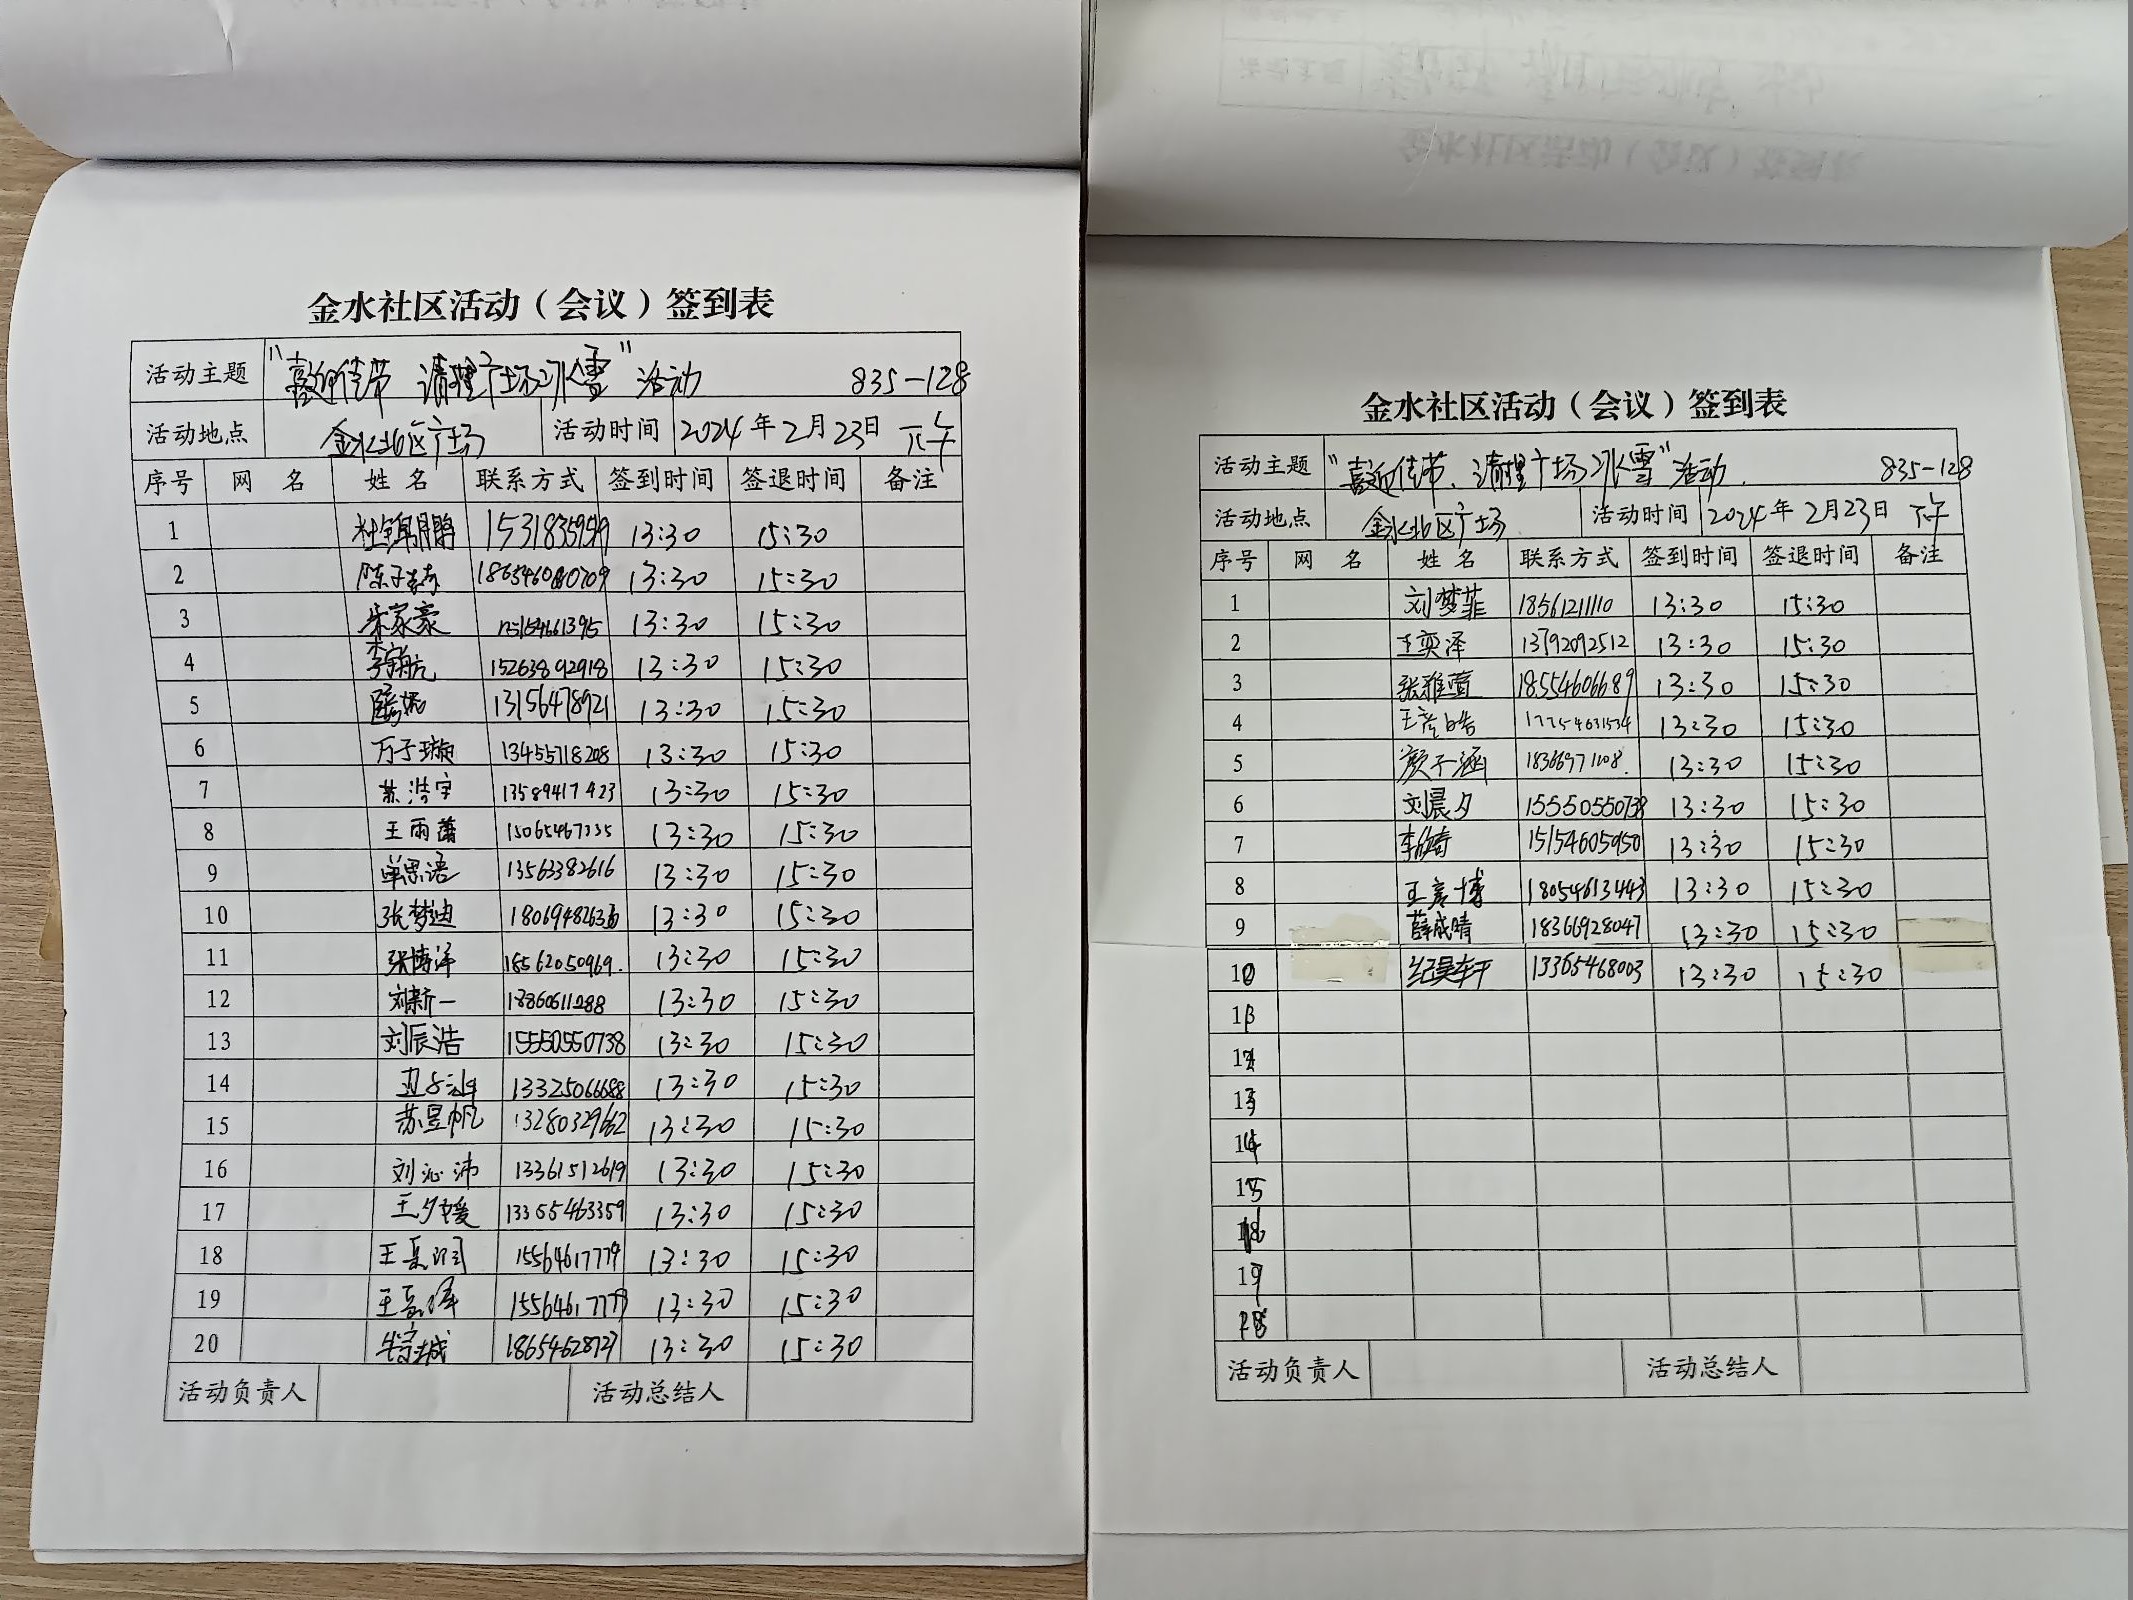 金水社区活动（会议）签到表
活动主题 "喜迎佳节 清理广场冰雪"活动 835-128
活动地点 金水北区广场 活动时间 2024年2月23日 下午
序号 网 名 姓 名 联系方式 签到时间 签退时间 备注
1 杜锦鹏 1531835959 13:30 15:30
2 13:30 15:30
3 宋家豪 13:30 15:30
4 李宇航 15263892918 13:30 15:30
5 13156478921 13:30 15:30
6 万子璇 13455718208 13:30 15:30
7 苏浩宇 13589417423 13:30 15:30
8 王雨蕾 15065467335 13:30 15:30
9 单思语 13563382616 13:30 15:30
10 张梦迪 13:30 15:30
11 张博洋 18562050969. 13:30 15:30
12 刘新一 18860611288 13:30 15:30
13 刘辰浩 15550550738 13:30 15:30
14 13325066688 13:30 15:30
15 苏昱帆 13280329662 13:30 15:30
16 刘沁沛 13361512619 13:30 15:30
17 王夕媛 13365463359 13:30 15:30
18 15564617779 13:30 15:30
19 15564617779 13:30 15:30
20 18654628727 13:30 15:30
活动负责人 活动总结人
金水社区活动（会议）签到表
活动主题 "喜迎佳节、清理广场冰雪"活动. 835-128
活动地点 金水北区广场 活动时间 2024年2月23日 下午
序号 网 名 姓 名 联系方式 签到时间 签退时间 备注
1 刘梦菲 18561211110 13:30 15:30
2 王奕泽 13792092512 13:30 15:30
3 张雅萱 18554606689 13:30 15:30
4 王彦皓 17754631534 13:30 15:30
5 颜子涵 18366971108. 13:30 15:30
6 刘晨夕 15550550738 13:30 15:30
7 15154605950 13:30 15:30
8 王彦博 18054613443 13:30 15:30
9 薛成晴 18366928047 13:30 15:30
10 纪昊轩 13365468003 13:30 15:30
活动负责人 活动总结人